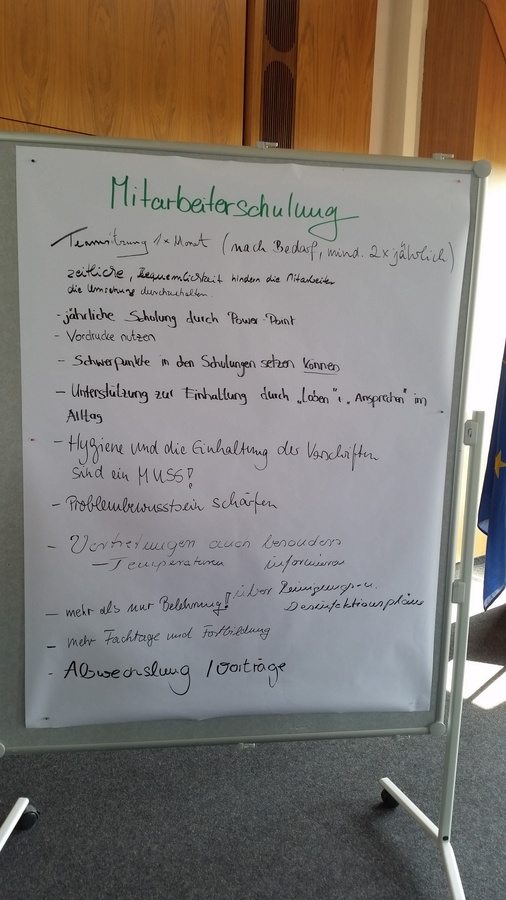 Mitarbeiterschulung
Teamsitzung 1x Monat (nach Bedarf, mind. 2x jährlich)
zeitliche, Bequemlichkeit hindern die Mitarbeiter
die Umsetzung durchzuhalten.
- jährliche Schulung durch Power-Point
- Vordrucke nutzen
- Schwerpunkte in den Schulungen setzen können
- Unterstützung zur Einhaltung durch "Loben", "Ansprechen" im
Alltag
- Hygiene und die Einhaltung der Vorschriften
sind ein MUSS!
- Problembewusstsein schärfen
- Vertretungen auch besonders
- Temperaturen informieren
über Reinigungs- u.
- mehr als nur Belehrung! Desinfektionspläne
- mehr Fachtage und Fortbildung
- Abwechslung / Vorträge